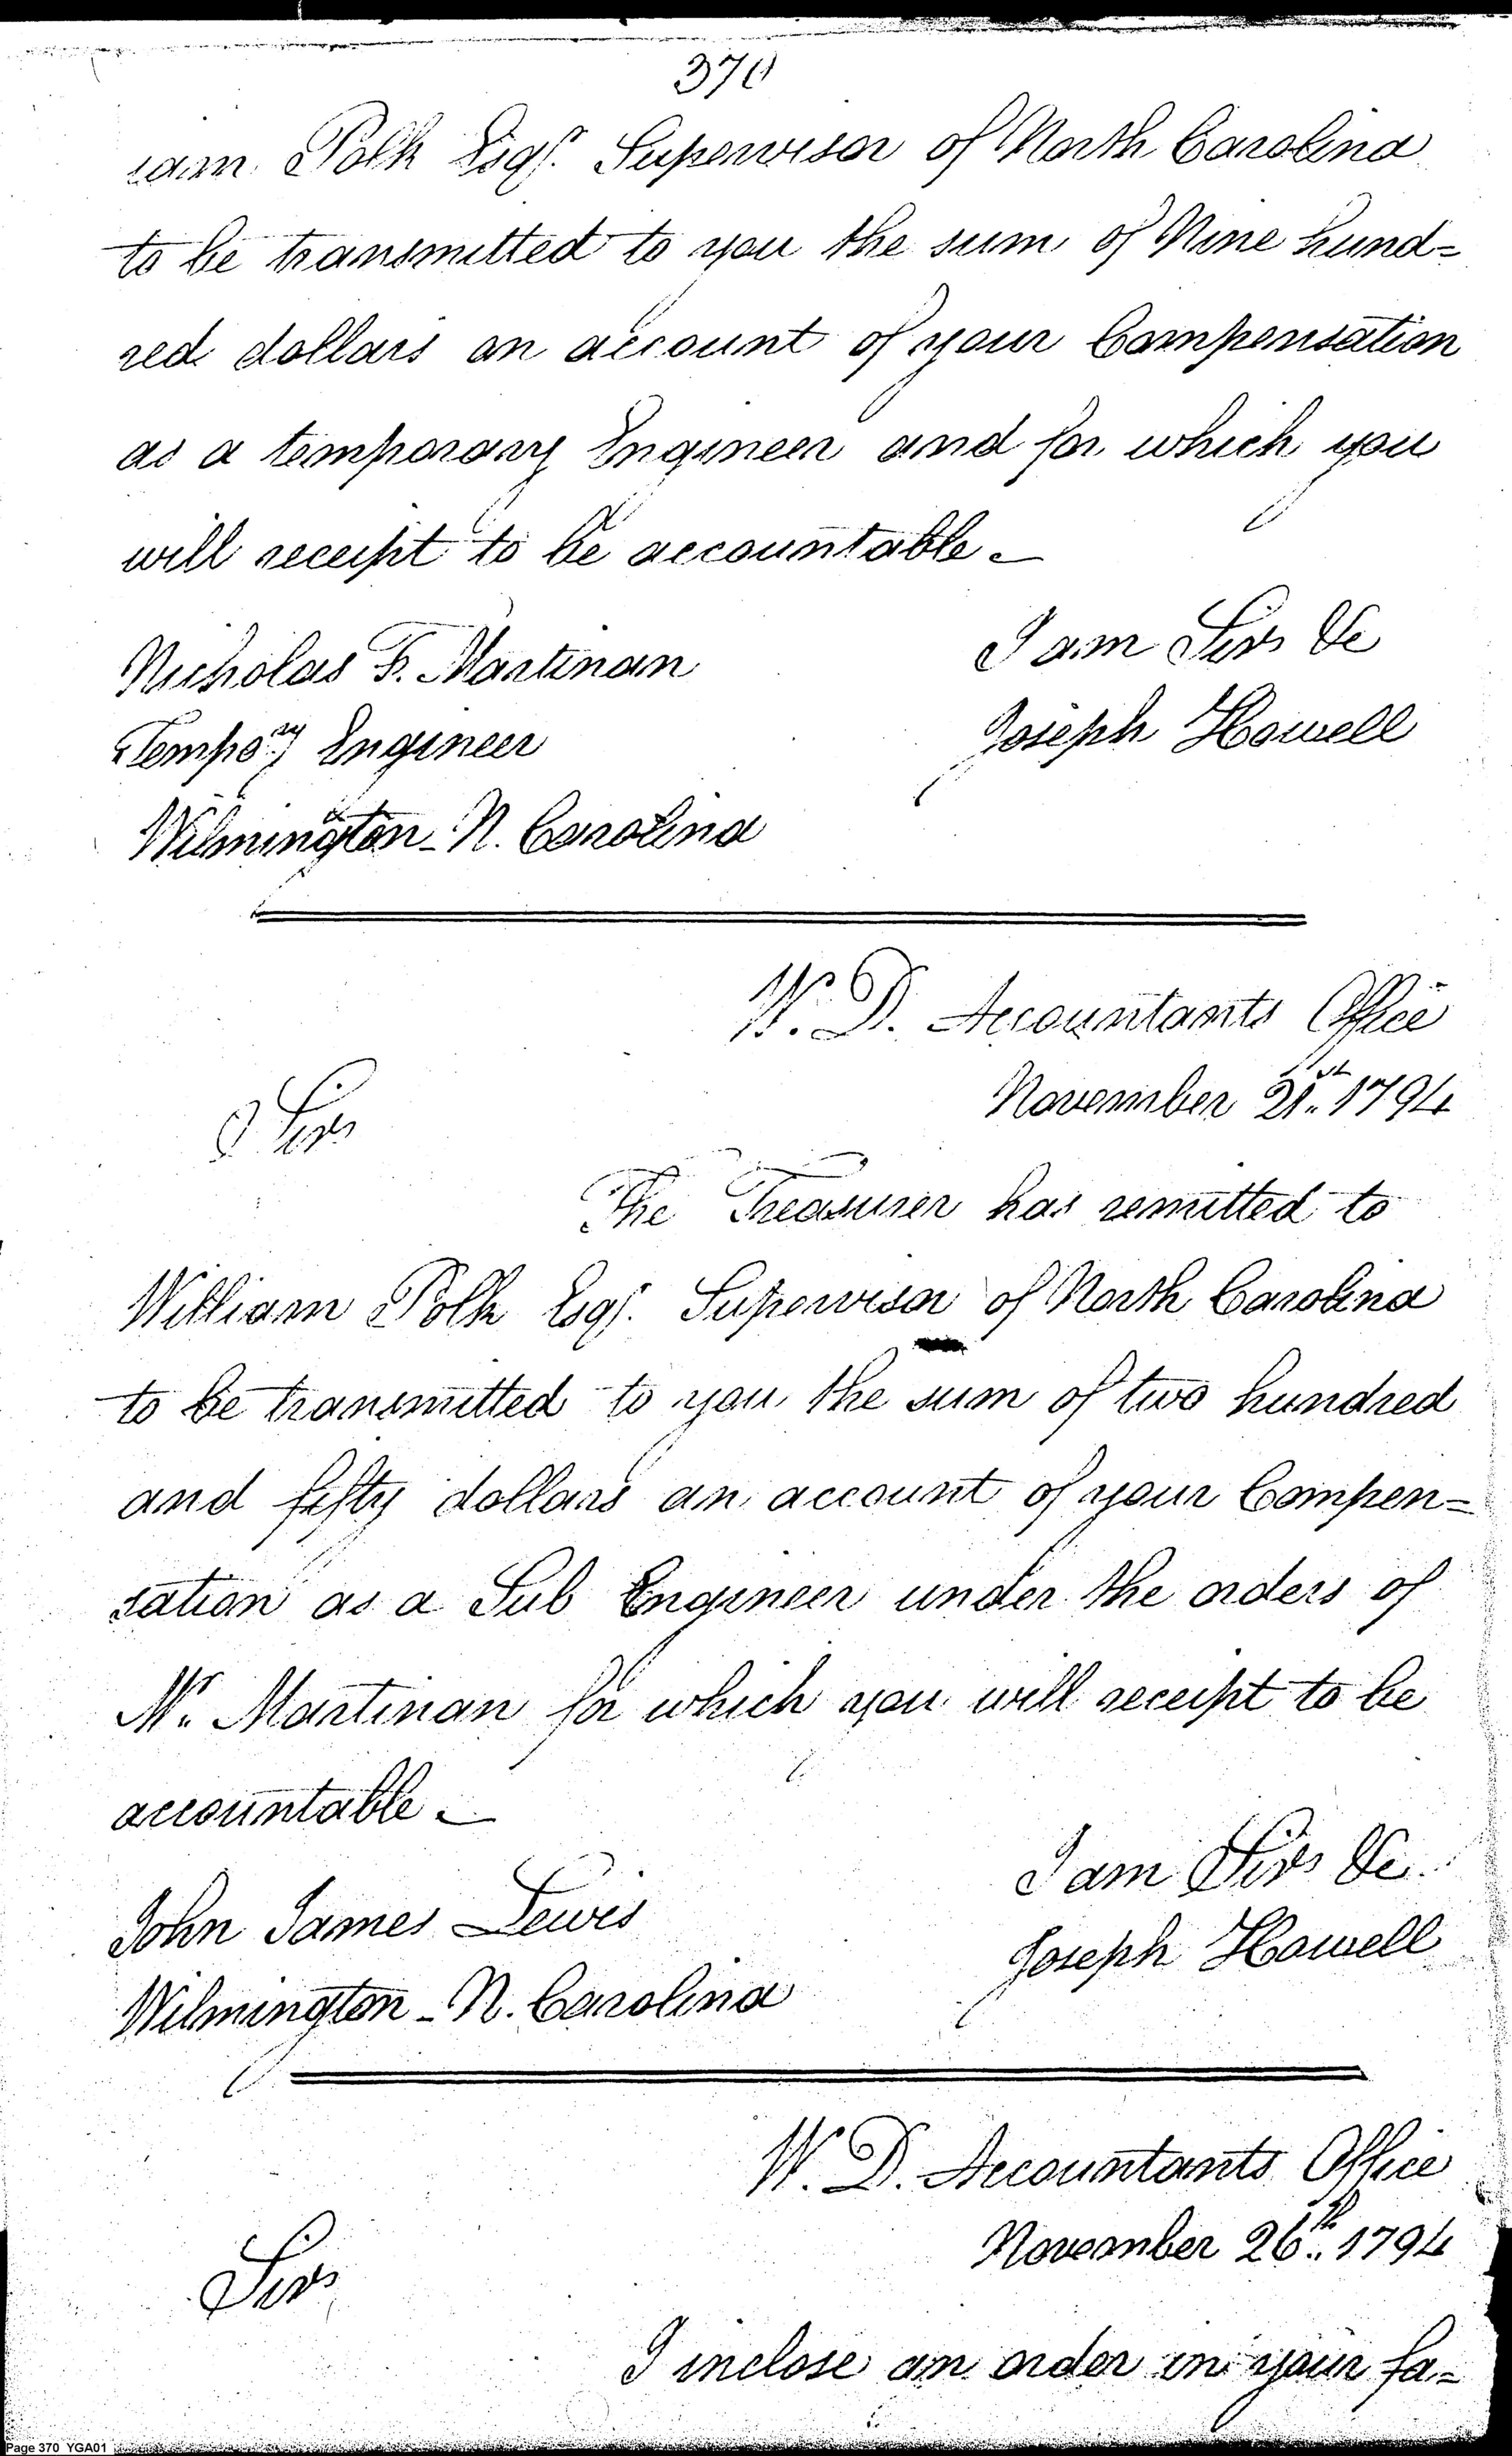 370
iam Polk Esqr. Supervisor of North Carolina
to be transmitted to you the sum of Nine hund=
red dollars on account of your Compensation
as a temporary Engineer and for which you
will receipt to be accountable _
I am Sir &c
Nicholas F. Martinan
Joseph Howell
Tempory Engineer
Wilmington - N. Carolina
W. D. Accountants Office
November 21st 1794
Sir
The Treasurer has remitted to
William Polk Esqr. Supervisor of North Carolina
to be transmitted to you the sum of two hundred
and fifty dollars on account of your Compen=
sation as a Sub Engineer under the orders of
Mr. Martinan for which you will receipt to be
accountable _
I am Sir &c
John James Lewis
Joseph Howell
Wilmington - N. Carolina
W. D. Accountants Office
November 26th 1794
Sir
I inclose an order in your fa=
Page 370 YGA01